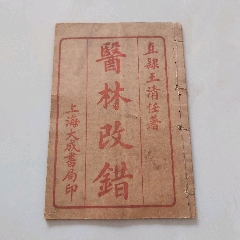 直隸王清任著
醫林改錯
上海大成書局印